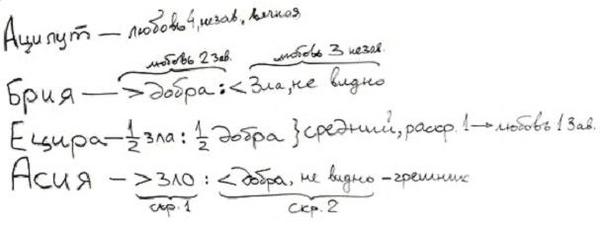 Ацилут — любовь 4, незав, вечная
любовь 2 зав. любовь 3 незав.
Брия — > добра : < Зла, не видно
Ецира — 1/2 зла : 1/2 добра } средний, раскр. 1 → любовь 1 зав.
Асия — > Зло : < добра, не видно - грешник
скр. 1 скр. 2